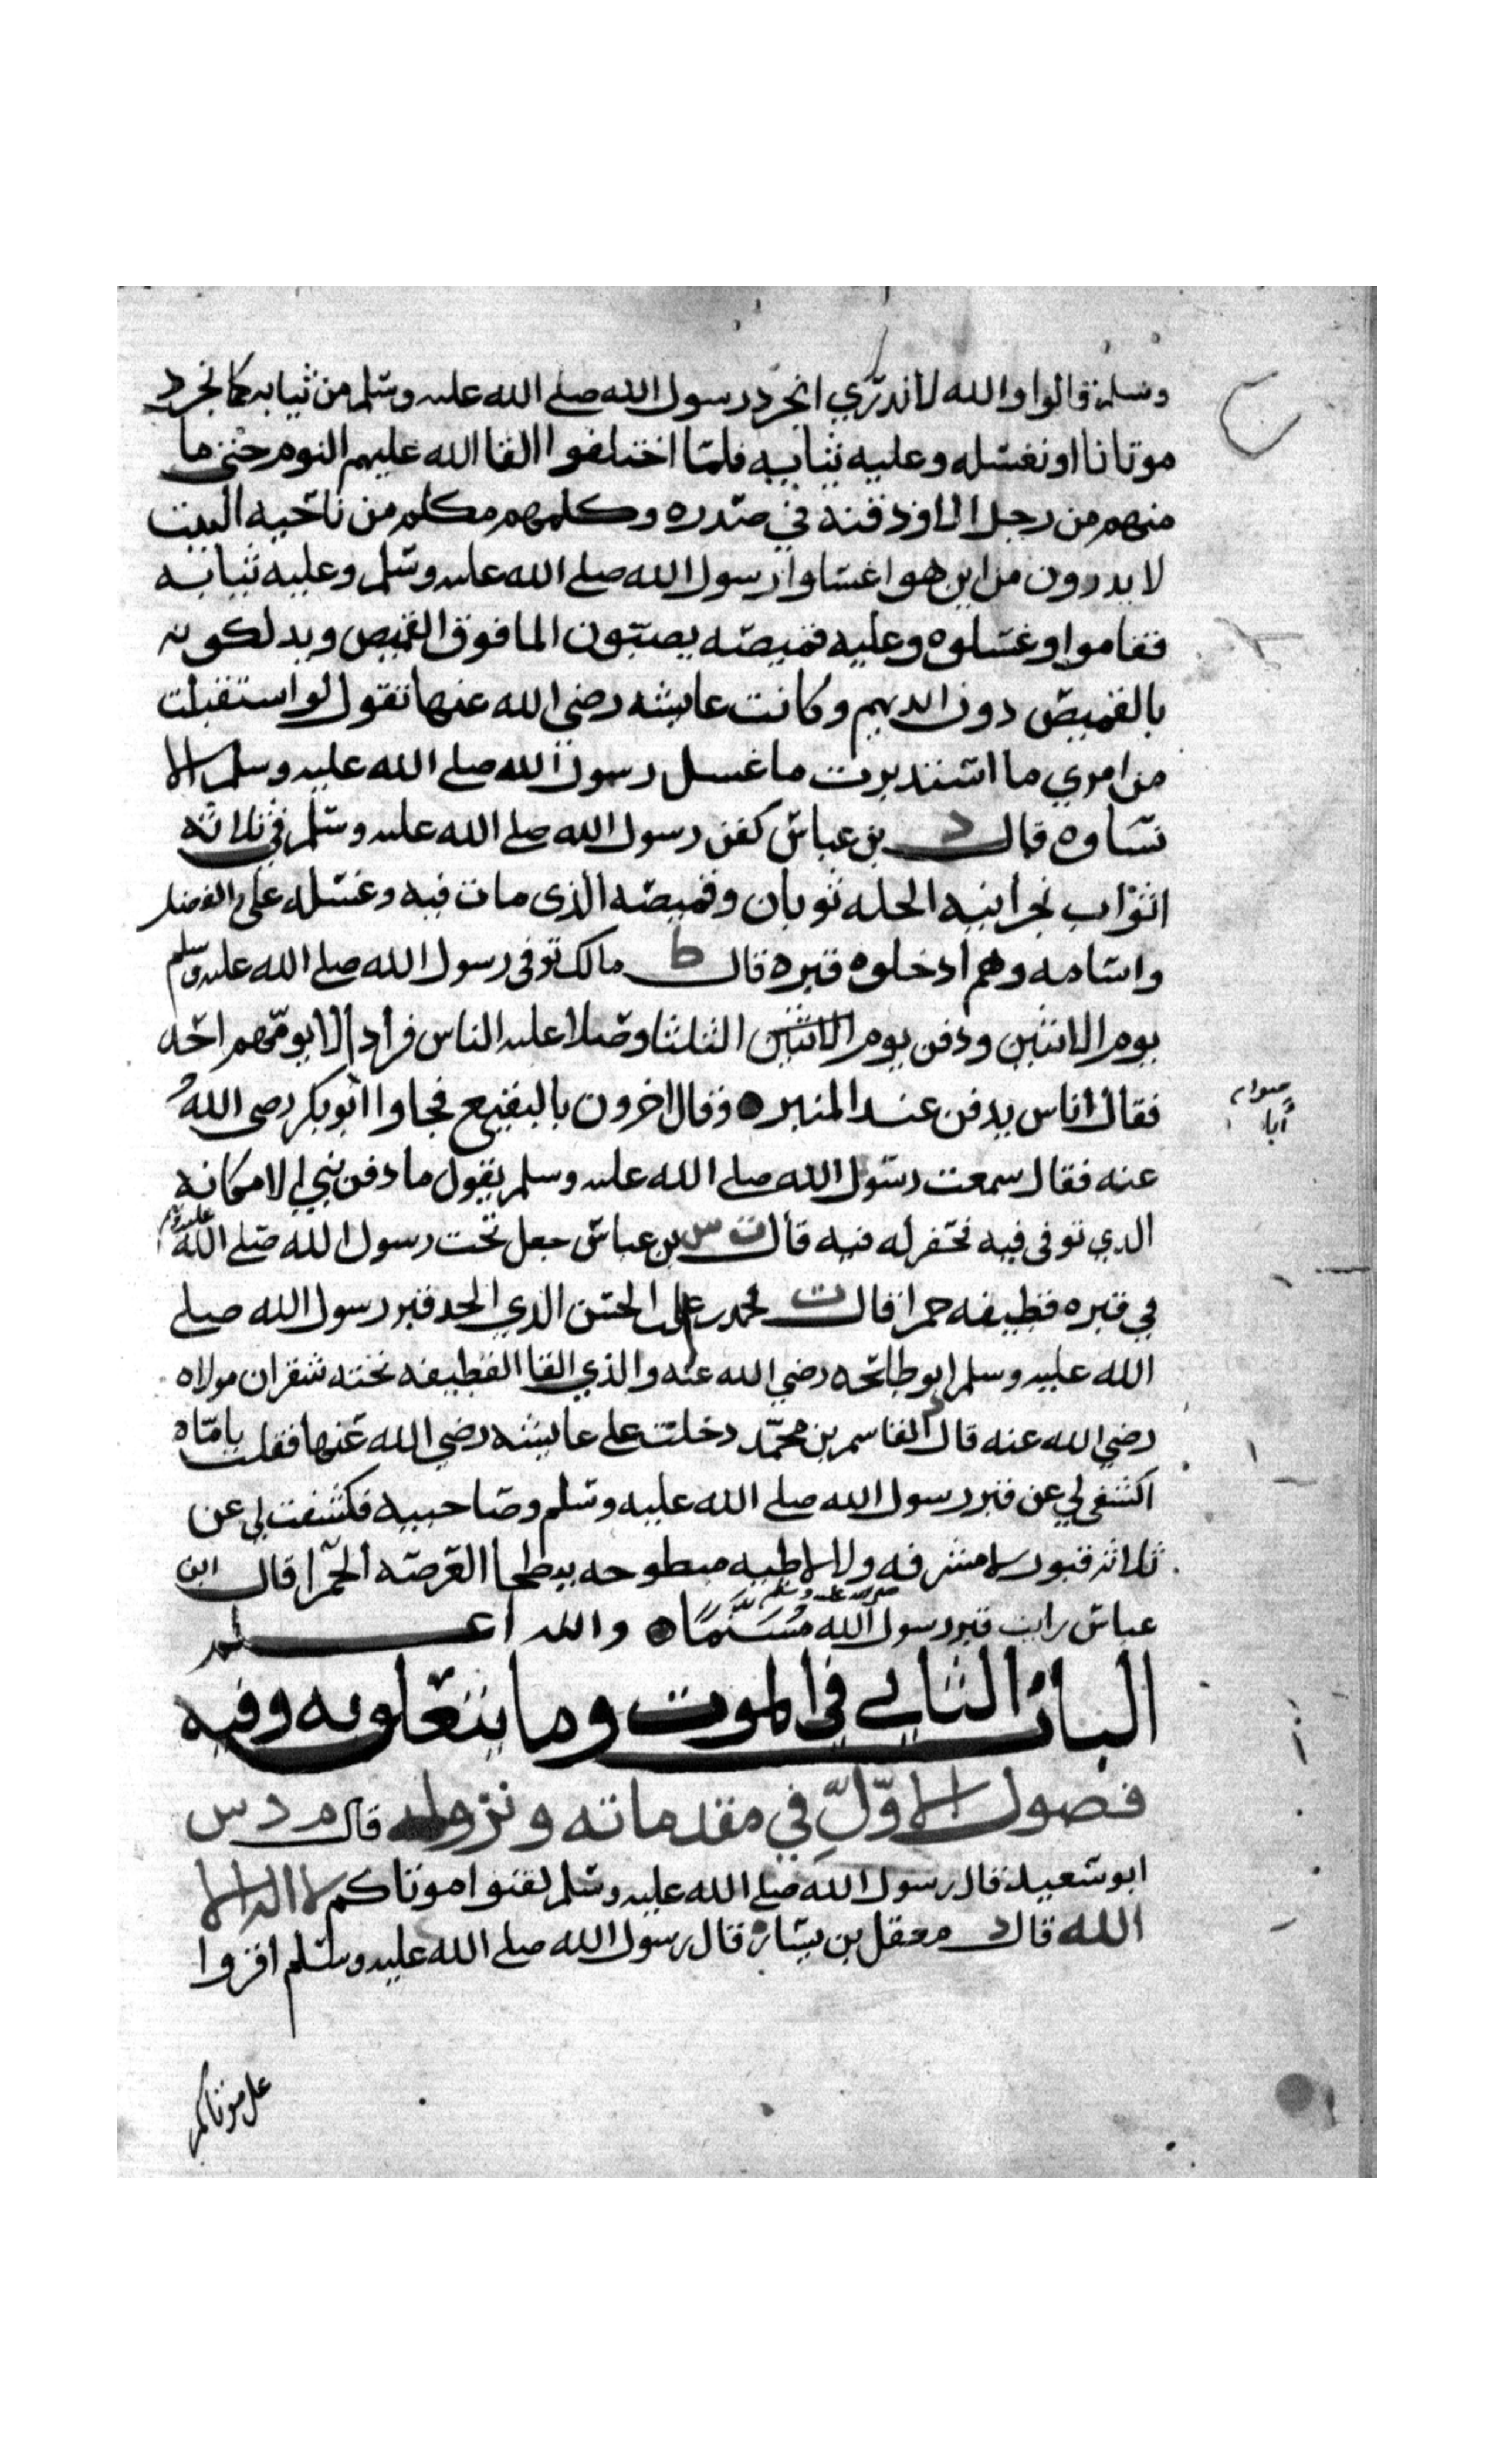 وسلم قالوا والله لا ندري انجرد رسول الله صلى الله عليه وسلم من ثيابه كما نجرد
موتانا او نغسله وعليه ثيابه فلما اختلفوا القا الله عليهم النوم حتى ما
منهم من رجل الا وذقنه في صدره وكلمهم مكلم من ناحيه البيت
لا يدرون من اين هو اغسلوا رسول الله صلى الله عليه وسلم وعليه ثيابه
فقاموا وغسلوه وعليه قميصه يصبون الما فوق القميص ويدلكونه
بالقميص دون ايديهم وكانت عايشه رضي الله عنها تقول لو استقبلت
من امري ما استدبرت ما غسل رسول الله صلى الله عليه وسلم الا
نساوه قال د بن عباس كفن رسول الله صلى الله عليه وسلم في ثلاثه
اثواب نجرانيه الحله ثوبان وقميصه الذى مات فيه وغسله على والفضل
واسامه وهم ادخلوه قبره قال ط مالك توفى رسول الله صلى الله عليه وسلم
يوم الاثنين ودفن يوم الاثنين الثلثا وصلا عليه الناس فرادا لا يومهم احد
فقال اناس يدفن عند المنبر وقال اخرون بالبقيع فجاوا ابو بكر رضى الله
صوابه
أبا
عنه فقال سمعت رسول الله صلى الله عليه وسلم يقول ما دفن نبي الا مكانه
الذي توفى فيه فحفر له فيه قال ت س بن عباس جعل تحت رسول الله صلى الله عليه وسلم
في قبره قطيفه حمرا قال ت محمد بن علي بن الحسن الذي الحد قبر رسول الله صلى
الله عليه وسلم ابو طلحه رضي الله عنه والذي القا القطيفه تحته شقران مولاه
رضي الله عنه قال د القاسم بن محمد دخلت على عايشه رضي الله عنها فقلت يا اماه
اكشفى لي عن قبر رسول الله صلى الله عليه وسلم وصاحبيه فكشفت لي عن
ثلاثه قبور لا مشرفه ولا لاطيه مبطوحه ببطحا العرصه الحمرا قال ابن
عباس رايت قبر رسول الله صلى الله عليه وسلم مُسَنَّمًا والله اعلم
الباب الثاني في الموت وما يتعلق به وفيه
فصول الاوّل في مقدماته ونزوله قال م د س
ابو سعيد قال رسول الله صلى الله عليه وسلم لقنوا موتاكم لا اله الا
الله قال د معقل بن يسار قال رسول الله صلى الله عليه وسلم اقروا
على موتاكم